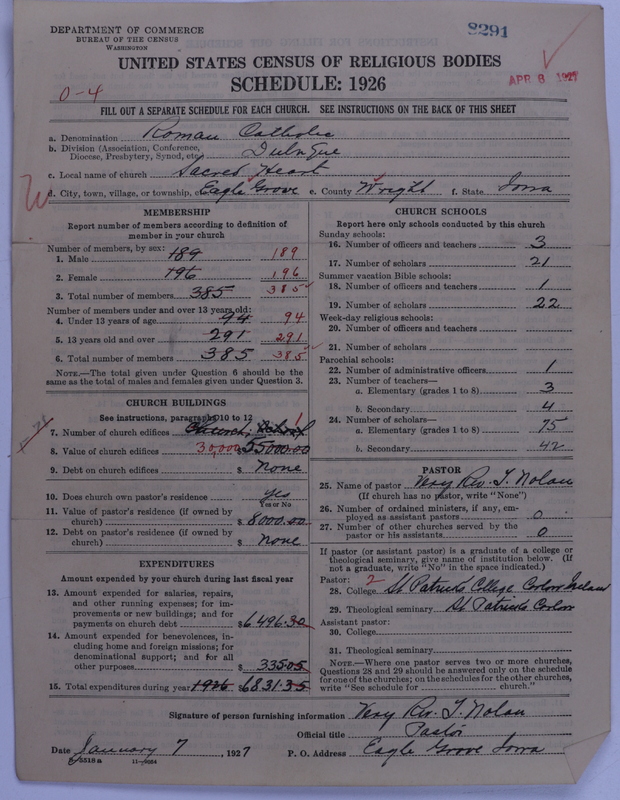 DEPARTMENT OF COMMERCE
BUREAU OF THE CENSUS
WASHINGTON
8291
UNITED STATES CENSUS OF RELIGIOUS BODIES
SCHEDULE: 1926
APR 8 1927
0-4
FILL OUT A SEPARATE SCHEDULE FOR EACH CHURCH. SEE INSTRUCTIONS ON THE BACK OF THIS SHEET
a. Denomination Roman Catholic
b. Division (Association, Conference, Diocese, Presbytery, Synod, etc.) Dubuque
c. Local name of church Sacred Heart
d. City, town, village, or township, etc. Eagle Grove e. County Wright f. State Iowa
MEMBERSHIP
Report number of members according to definition of
member in your church
Number of members, by sex:
1. Male 189 189
2. Female 196 196
3. Total number of members 385 385
Number of members under and over 13 years old:
4. Under 13 years of age 94 94
5. 13 years old and over 291 291
6. Total number of members 385 385
NOTE.—The total given under Question 6 should be
same as the total of males and females given under Question 3.
CHURCH BUILDINGS
See instructions, paragraphs 10 to 12
7. Number of church edifices Church, School 1
8. Value of church edifices 30,000 $55000.00
9. Debt on church edifices $ None
10. Does church own pastor's residence Yes
Yes or No
11. Value of pastor's residence (if owned by
church) $ 8000.00
12. Debt on pastor's residence (if owned by
church) $ None
EXPENDITURES
Amount expended by your church during last fiscal year
13. Amount expended for salaries, repairs,
and other running expenses; for im-
provements or new buildings; and for
payments on church debt $6496.30
14. Amount expended for benevolences, in-
cluding home and foreign missions; for
denominational support; and for all
other purposes $ 335.05
15. Total expenditures during year 1926 $6831.35
CHURCH SCHOOLS
Report here only schools conducted by this church
Sunday schools:
16. Number of officers and teachers 3
17. Number of scholars 21
Summer vacation Bible schools:
18. Number of officers and teachers 1
19. Number of scholars 22
Week-day religious schools:
20. Number of officers and teachers
21. Number of scholars
Parochial schools:
22. Number of administrative officers 1
23. Number of teachers—
a. Elementary (grades 1 to 8) 3
b. Secondary 4
24. Number of scholars—
a. Elementary (grades 1 to 8) 75
b. Secondary 42
PASTOR
25. Name of pastor Very Rev. T. Nolan
(If church has no pastor, write "None")
26. Number of ordained ministers, if any, em-
ployed as assistant pastors 0
27. Number of other churches served by the
pastor or his assistants 0
If pastor (or assistant pastor) is a graduate of a college or
theological seminary, give name of institution below. (If
not a graduate, write "No" in the space indicated.)
Pastor: 2
28. College St Patricks College Carlow Ireland
29. Theological seminary St Patricks Carlow
Assistant pastor:
30. College
31. Theological seminary
NOTE.—Where one pastor serves two or more churches,
Questions 28 and 29 should be answered only on the schedule
for one of the churches; on the schedules for the other churches,
write "See schedule for church."
Signature of person furnishing information Very Rev. T. Nolan
Official title Pastor
Date January 7, 1927 P. O. Address Eagle Grove Iowa